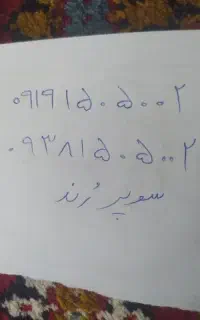 ۰۹۱۹۱۵۰۵۰۰۲
۰۹۳۸۱۵۰۵۰۰۲
سوپر رُند